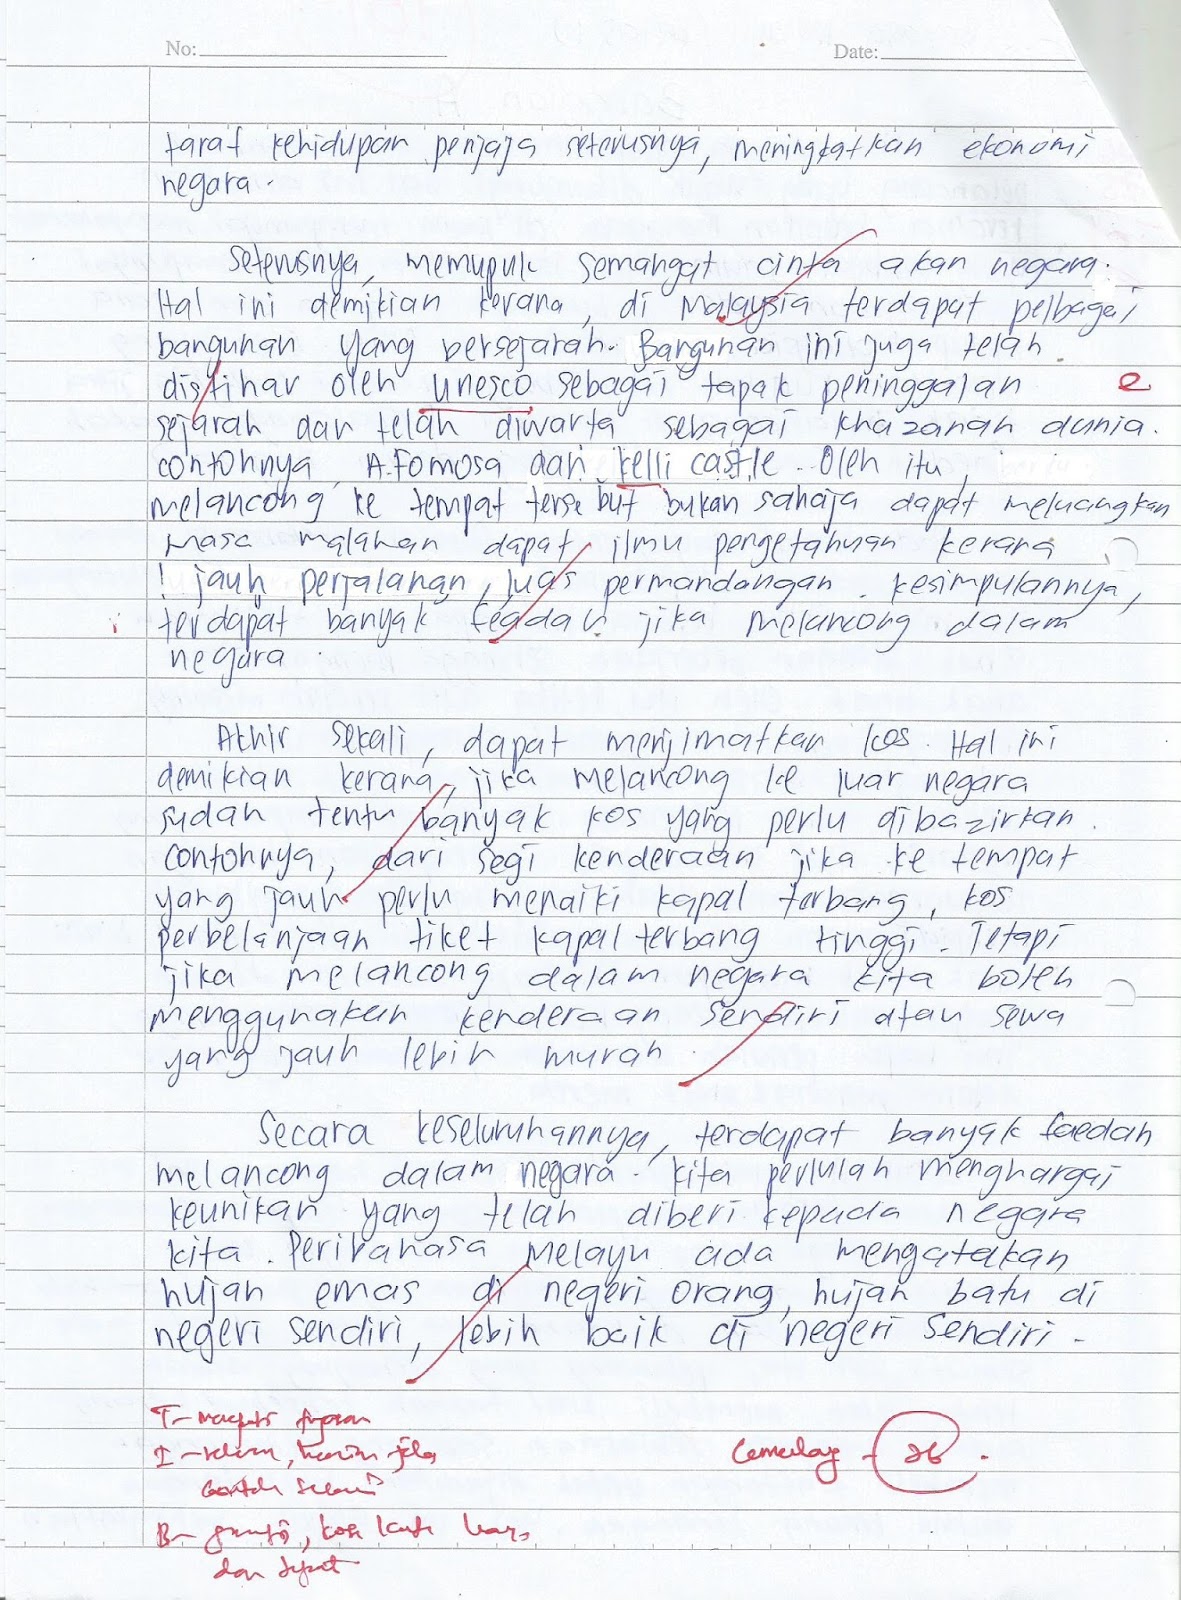 No:
Date:
taraf kehidupan penjaja seterusnya, meningkatkan ekonomi
negara.
Seterusnya, memupuk semangat cinta akan negara.
Hal ini demikian kerana, di Malaysia terdapat pelbagai
bangunan yang bersejarah. Bangunan ini juga telah
disytihar oleh unesco sebagai tapak peninggalan
e
sejarah dan telah diwarta sebagai khazanah dunia.
contohnya, A.Fomosa dan kelli castle. Oleh itu,
melancong ke tempat tersebut bukan sahaja dapat meluangkan
masa malahan dapat ilmu pengetahuan kerana
! jauh perjalanan, luas permandangan. kesimpulannya,
i terdapat banyak feadah jika melancong dalam
negara.
Akhir sekali, dapat menjimatkan kos. Hal ini
demikian kerana, jika melancong ke luar negara
sudah tentu banyak kos yang perlu dibazirkan.
contohnya, dari segi kenderaan jika ke tempat
yang jauh perlu menaiki kapal terbang, kos
perbelanjaan tiket kapal terbang tinggi. Tetapi
jika melancong dalam negara kita boleh
menggunakan kenderaan sendiri atau sewa
yang jauh lebih murah.
Secara keseluruhannya, terdapat banyak faedah
melancong dalam negara. kita perlulah menghargai
keunikan yang telah diberi kepada negara
kita. Peribahasa melayu ada mengatakan
hujan emas di negeri orang, hujan batu di
negeri sendiri, lebih baik di negeri sendiri.
T-
I-
Cemerlang - 26.
B-
dan